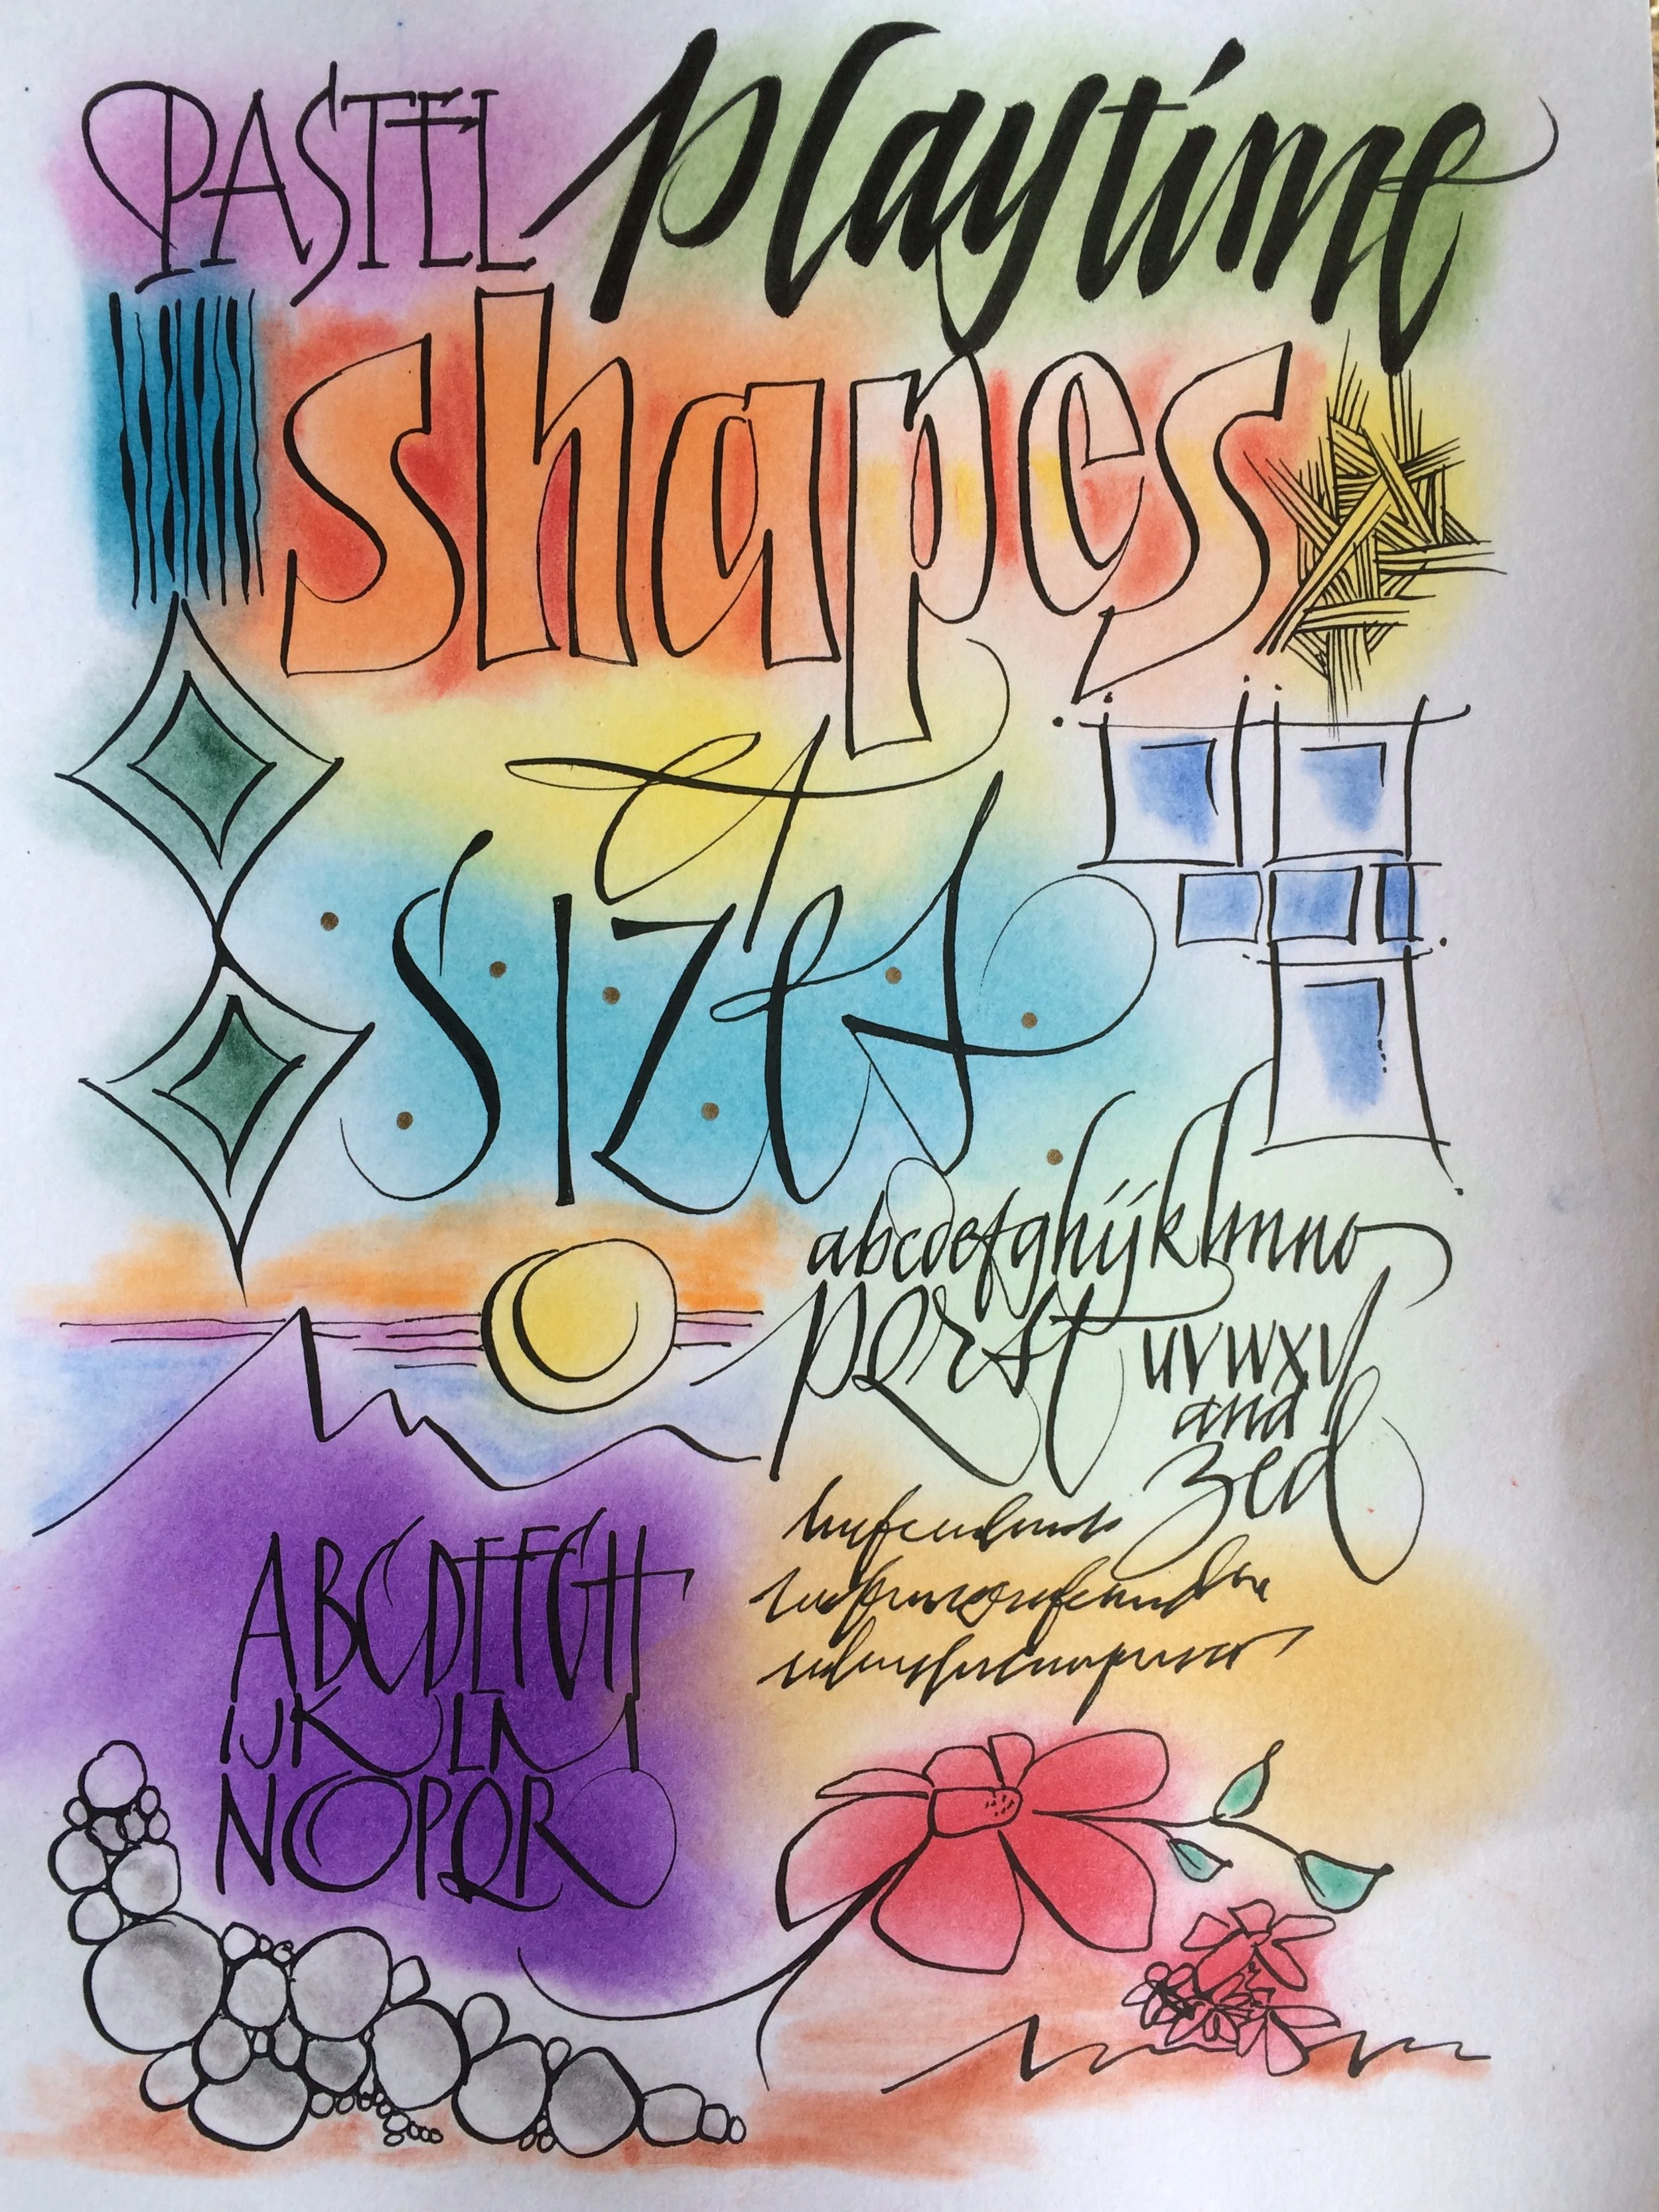 PASTEL playtime
shapes
et
sizes
abcdefghijklmno
pqrst uvwxy
and
zed
ABCDEFGH
IJKLM
NOPQR